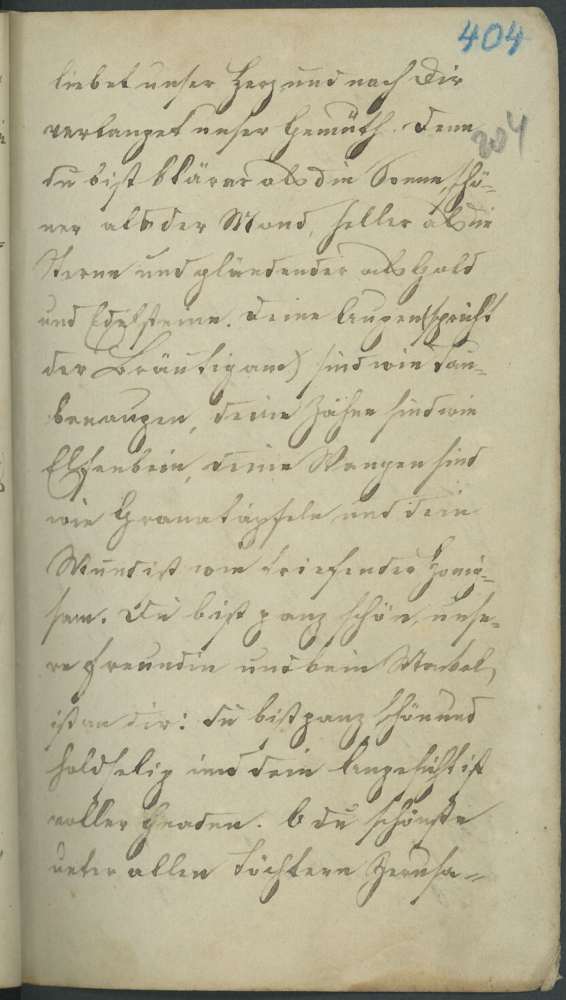 404
204
liebet unser Herz und nach Dir
verlanget unser Gemüth. Denn
du bist klärer als die Sonne, schö-
ner als der Mond, heller als die
Sterne und gländender als Gold
und Edelsteine. Deine Augen (spricht
der Bräutigam) sind wie Tau-
benaugen, deine Zähne sind wie
Elfenbein, deine Wangen sind
wie Granatäpfeln und dein
Mund ist wie triefender Honig-
sam. Du bist ganz schön, unse-
re Freundin und kein Makel
ist an dir: du bist ganz schön und
holdselig und dein Angesicht ist
voller Gnaden. O du schönste
unter allen Töchtern Jerusa-